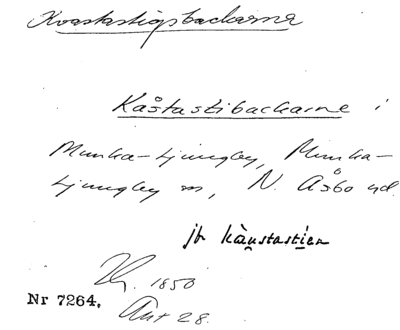 Kvastastigsbackarna
Kåstastibackarne i
Munka-Ljungby, Munka-
Ljungby sn, N. Åsbo hd.
jfr kåustastien
1850
Nr 7264.
Ant 28.